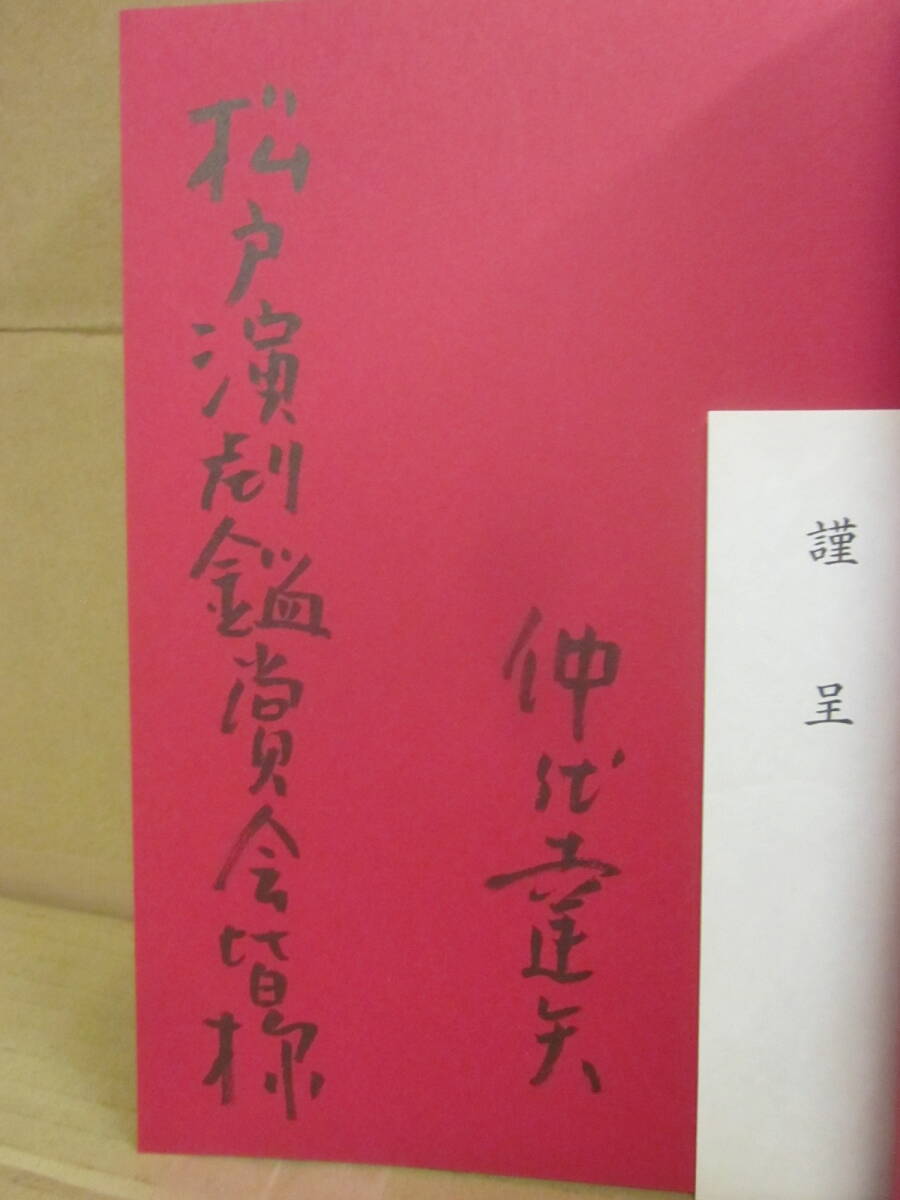 謹呈
仲代達矢
松戸演劇鑑賞会皆様